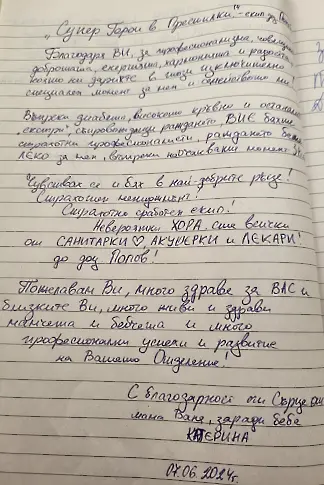 „Супер Герои в Престилки,“ - екип
Благодаря Ви, за професионализма, човещината
добротата, енергията, хармонията и радостта
които ни дарихте в този изключително
специален момент за мен и семейството ми
Въпреки диабета, високото кръвно и останали
екстри, съпровождащи раждането, ВИЕ бяхте
страхотни професионалисти, раждането беше
ЛЕКО за мен, въпреки
Чувствах се и бях в най-добрите ръце!
Страхотен мениджмънт!
Страхотно сработен екип!
Невероятни ХОРА, сте всички
от САНИТАРКИ ♡ АКУШЕРКИ и ЛЕКАРИ!
до доц. Попов!
Пожелавам Ви, много здраве за ВАС и
близките Ви, много живи и здрави
майчета и бебчета и много
професионални успехи и развитие
на Вашето Отделение!
С благодарност от Сърце
мама Ваня, заради бебе
КАТЕРИНА
07.06.2024г.